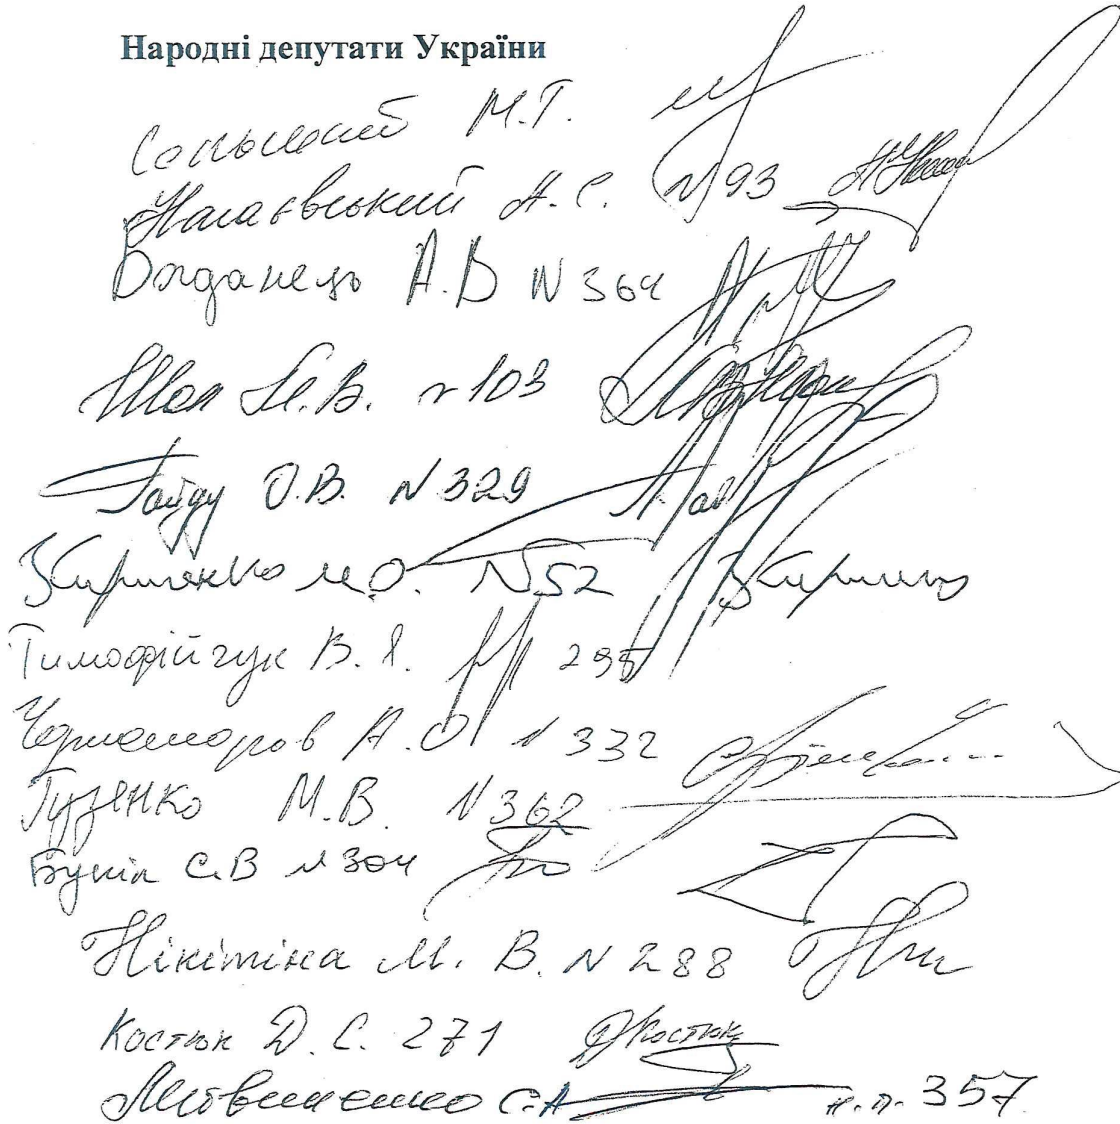 Народні депутати України
Сольський М.Т.
Нагаєвський А.С. N 93
Богданець А.В N 364
Шол М.В. N 103
Гайду О.В. N 329
Кириченко М.О. N52
Тимофійчук В.Я. 295
Чорноморов А.О N 332
Гузенко М.В. N 362
Бунін С.В N 304
Нікітіна М. В. N 288
Костюк Д. С. 271 ДКостюк
Литвиненко С.А н.п. 357